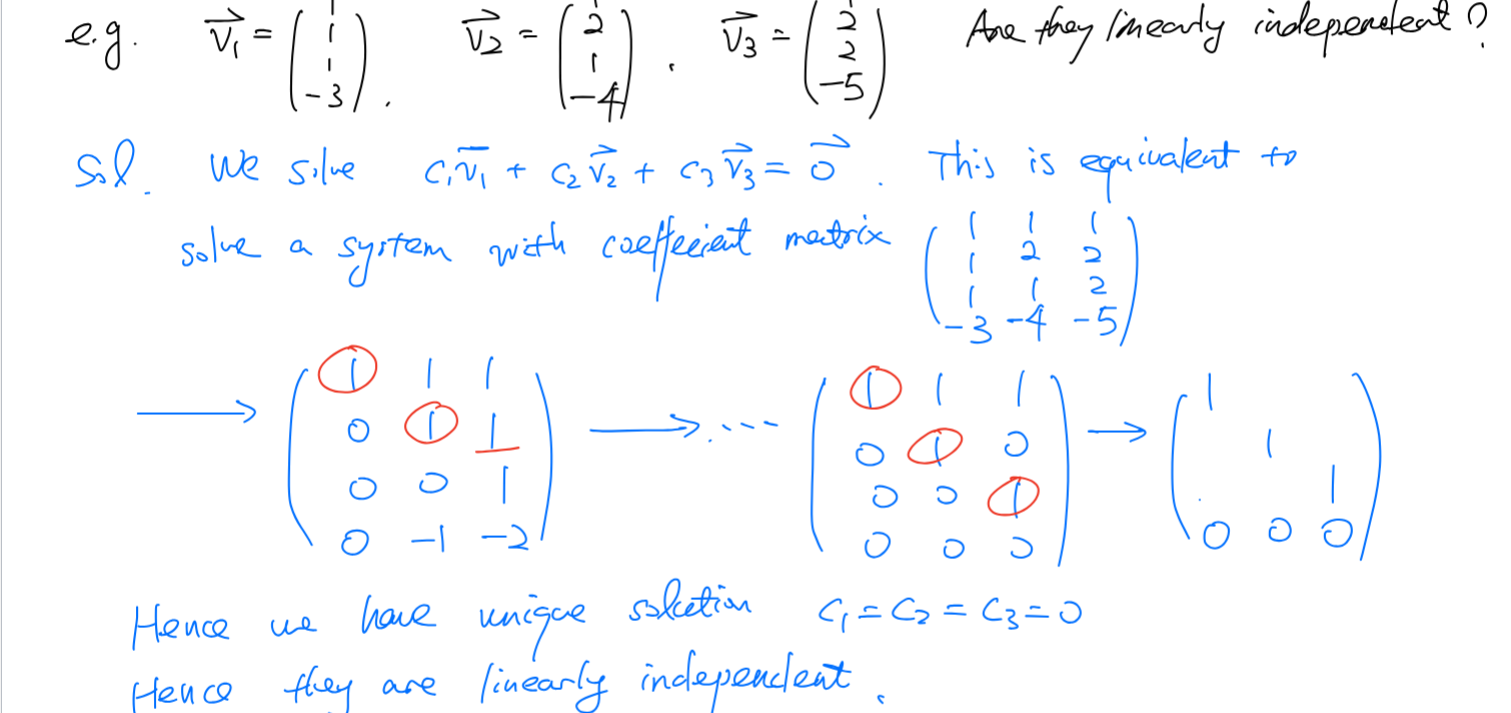 e.g. v₁ = (1 1 1 -3), v₂ = (1 2 1 -4), v₃ = (1 2 2 -5) Are they linearly independent?
Sol. We solve c₁v₁ + c₂v₂ + c₃v₃ = 0. This is equivalent to
solve a system with coefficient matrix
1 1 1
1 2 2
1 1 2
-3 -4 -5
→
1 1 1
0 1 1
0 0 1
0 -1 -2
→ ...
1 1 1
0 1 0
0 0 1
0 0 0
→
1
1
1
0 0 0
Hence we have unique solution c₁ = c₂ = c₃ = 0
Hence they are linearly independent.